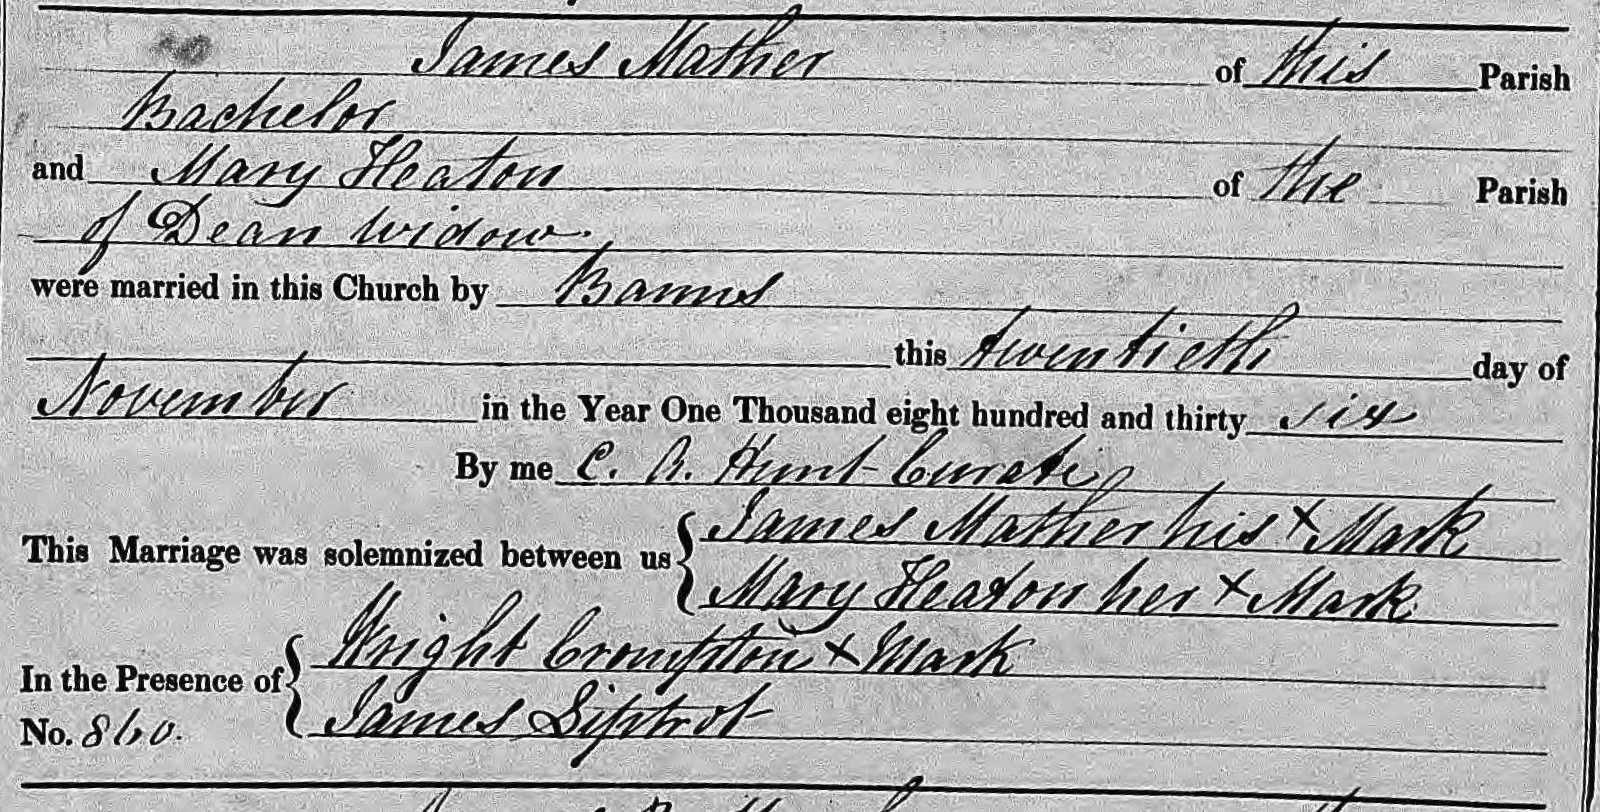 James Mather of this Parish
Bachelor
and Mary Heaton of the Parish
of Dean Widow.
were married in this Church by Banns
this twentieth day of
November in the Year One Thousand eight hundred and thirty six
By me C. A. Hunt Curate
This Marriage was solemnized between us { James Mather his X Mark
Mary Heaton her X Mark
In the Presence of { Wright Crompton X Mark
James Siptrot
No. 860.